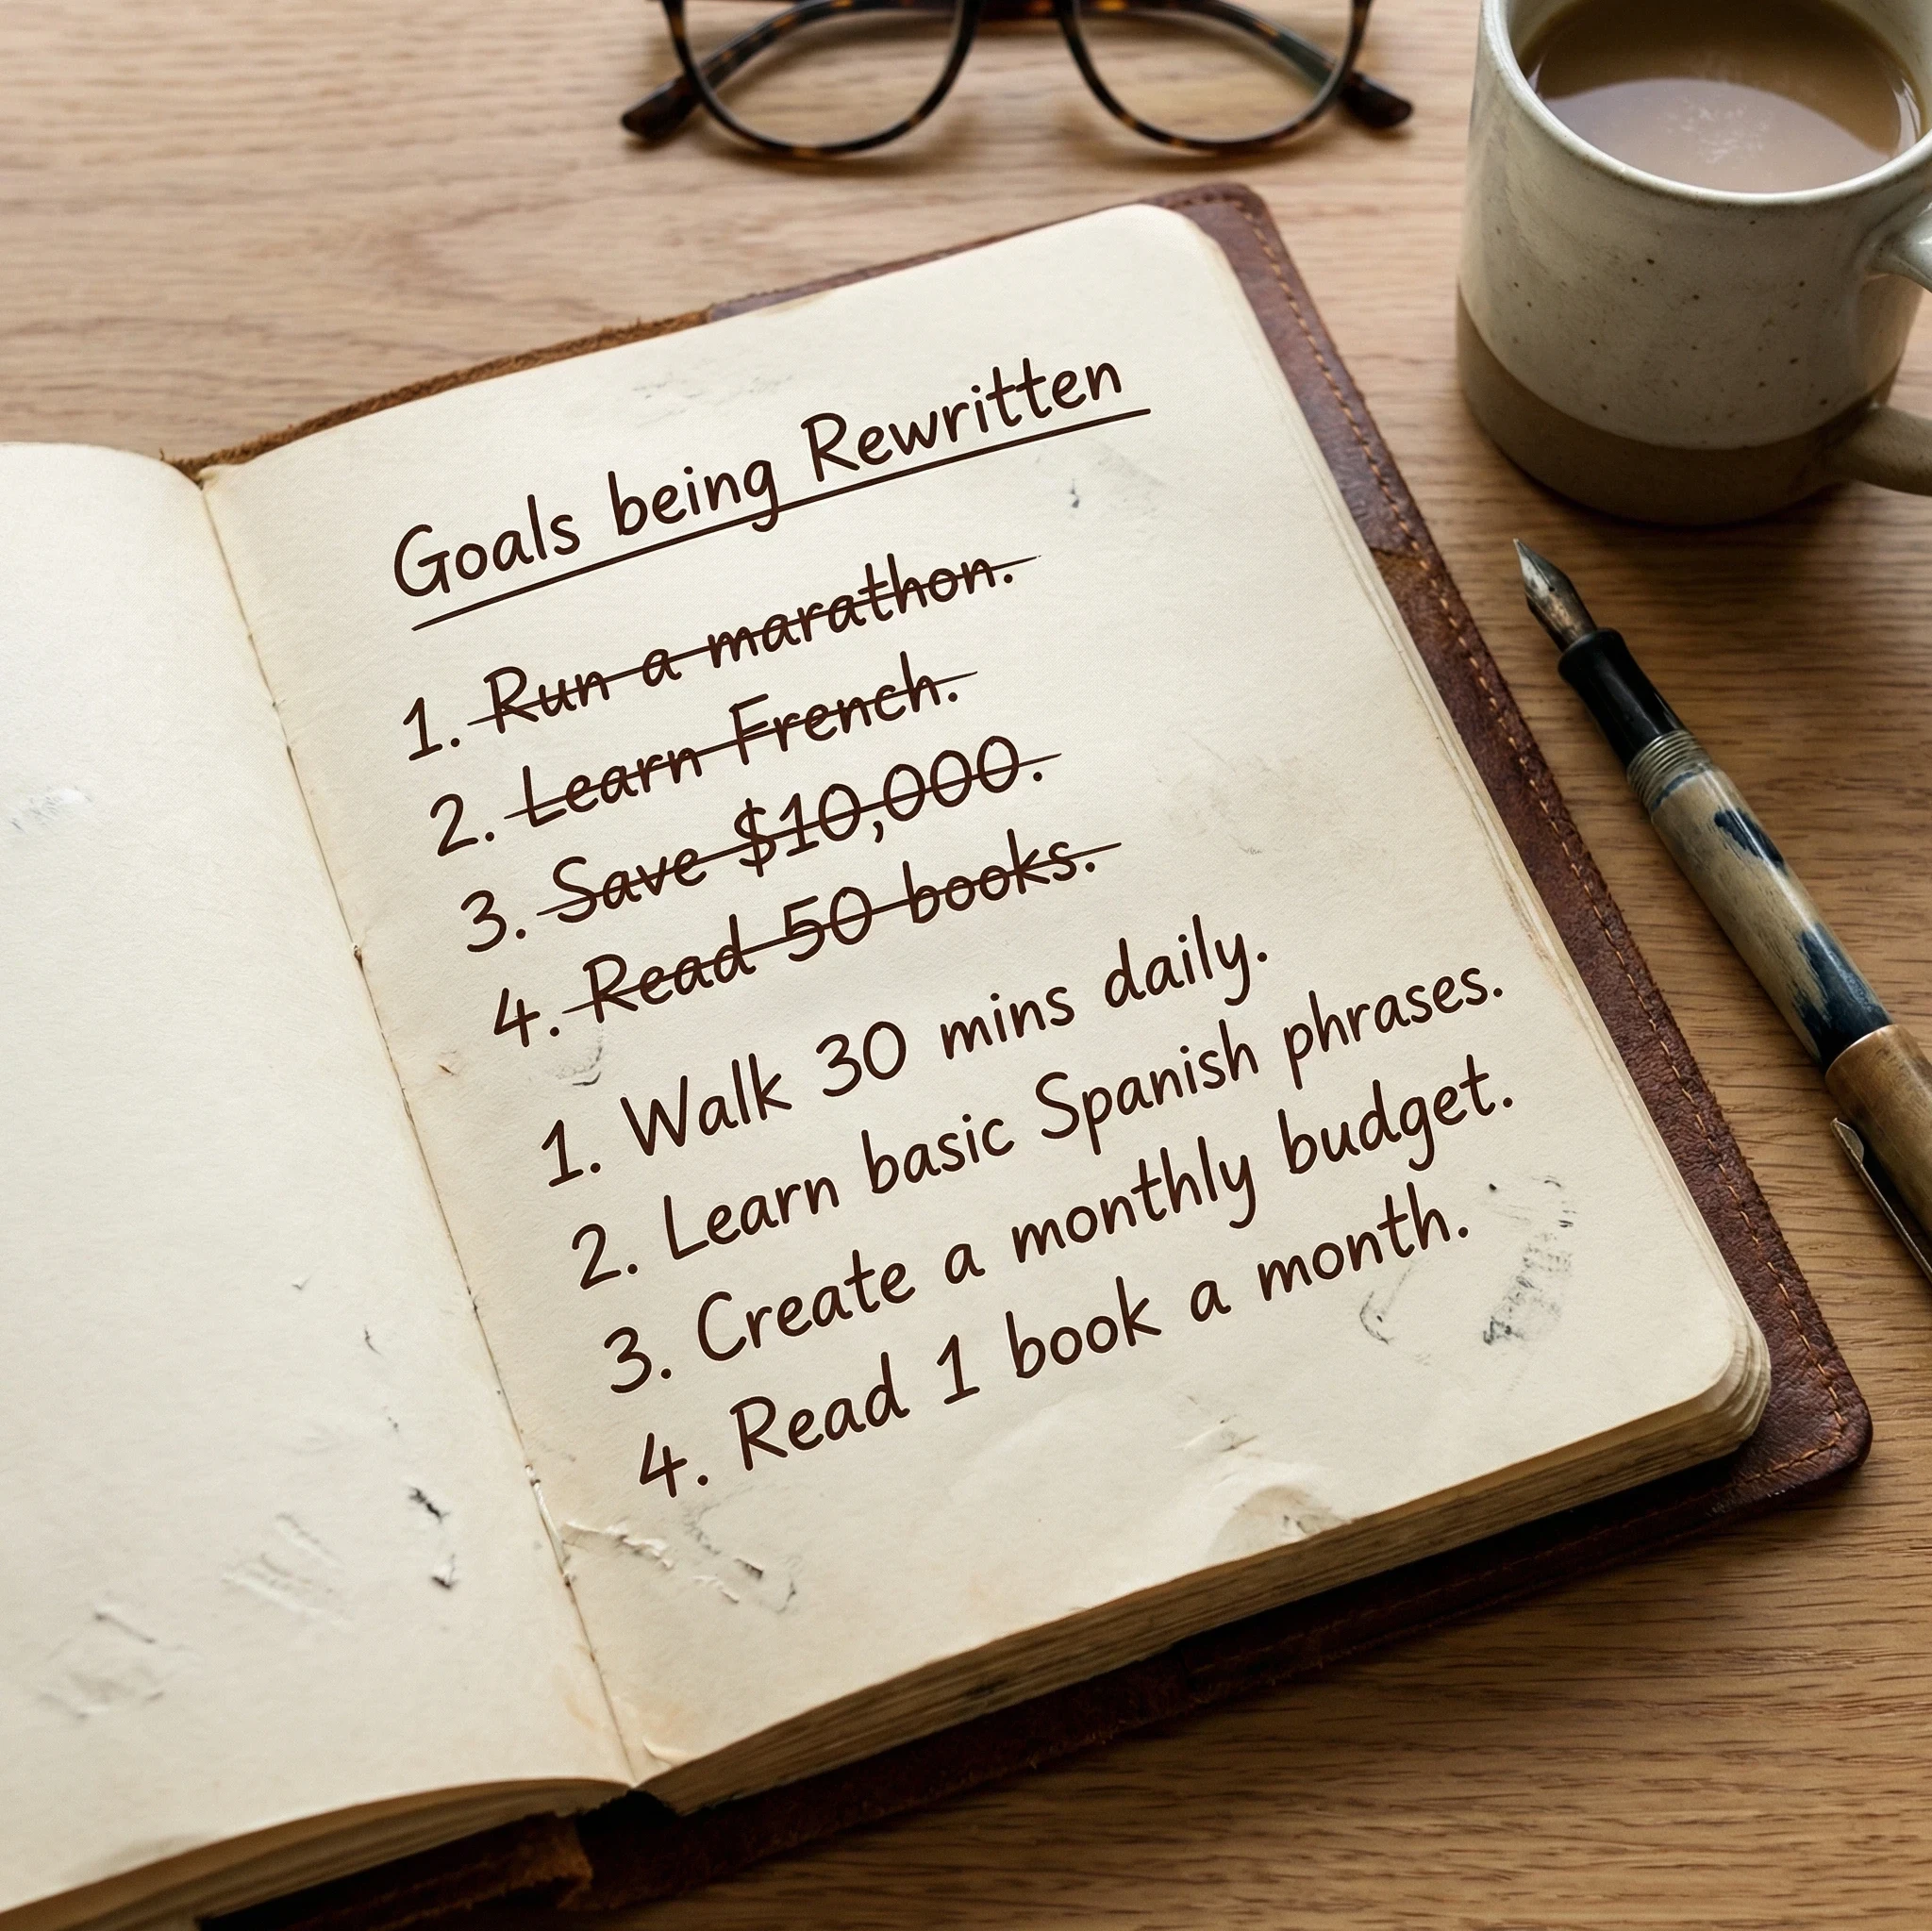 Goals being Rewritten
1. Run a marathon.
2. Learn French.
3. Save $10,000.
4. Read 50 books.
1. Walk 30 mins daily.
2. Learn basic Spanish phrases.
3. Create a monthly budget.
4. Read 1 book a month.